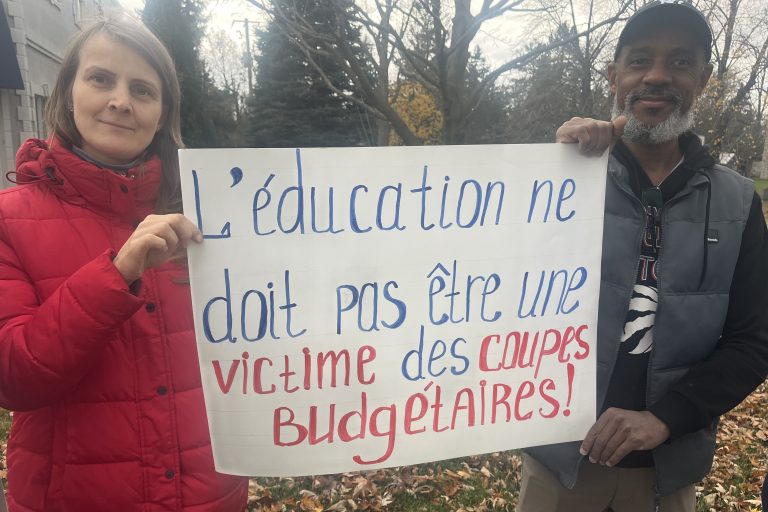 L'éducation ne
doit pas être une
victime des coupes
Budgétaires!